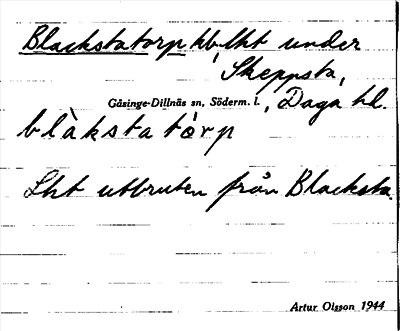 Blackstatorp hb, lht under
Skeppsta,
Gåsinge-Dillnäs sn, Söderm. l., Daga hd.
blàksta tórp
Lht utbruten från Blacksta.
Artur Olsson 1944